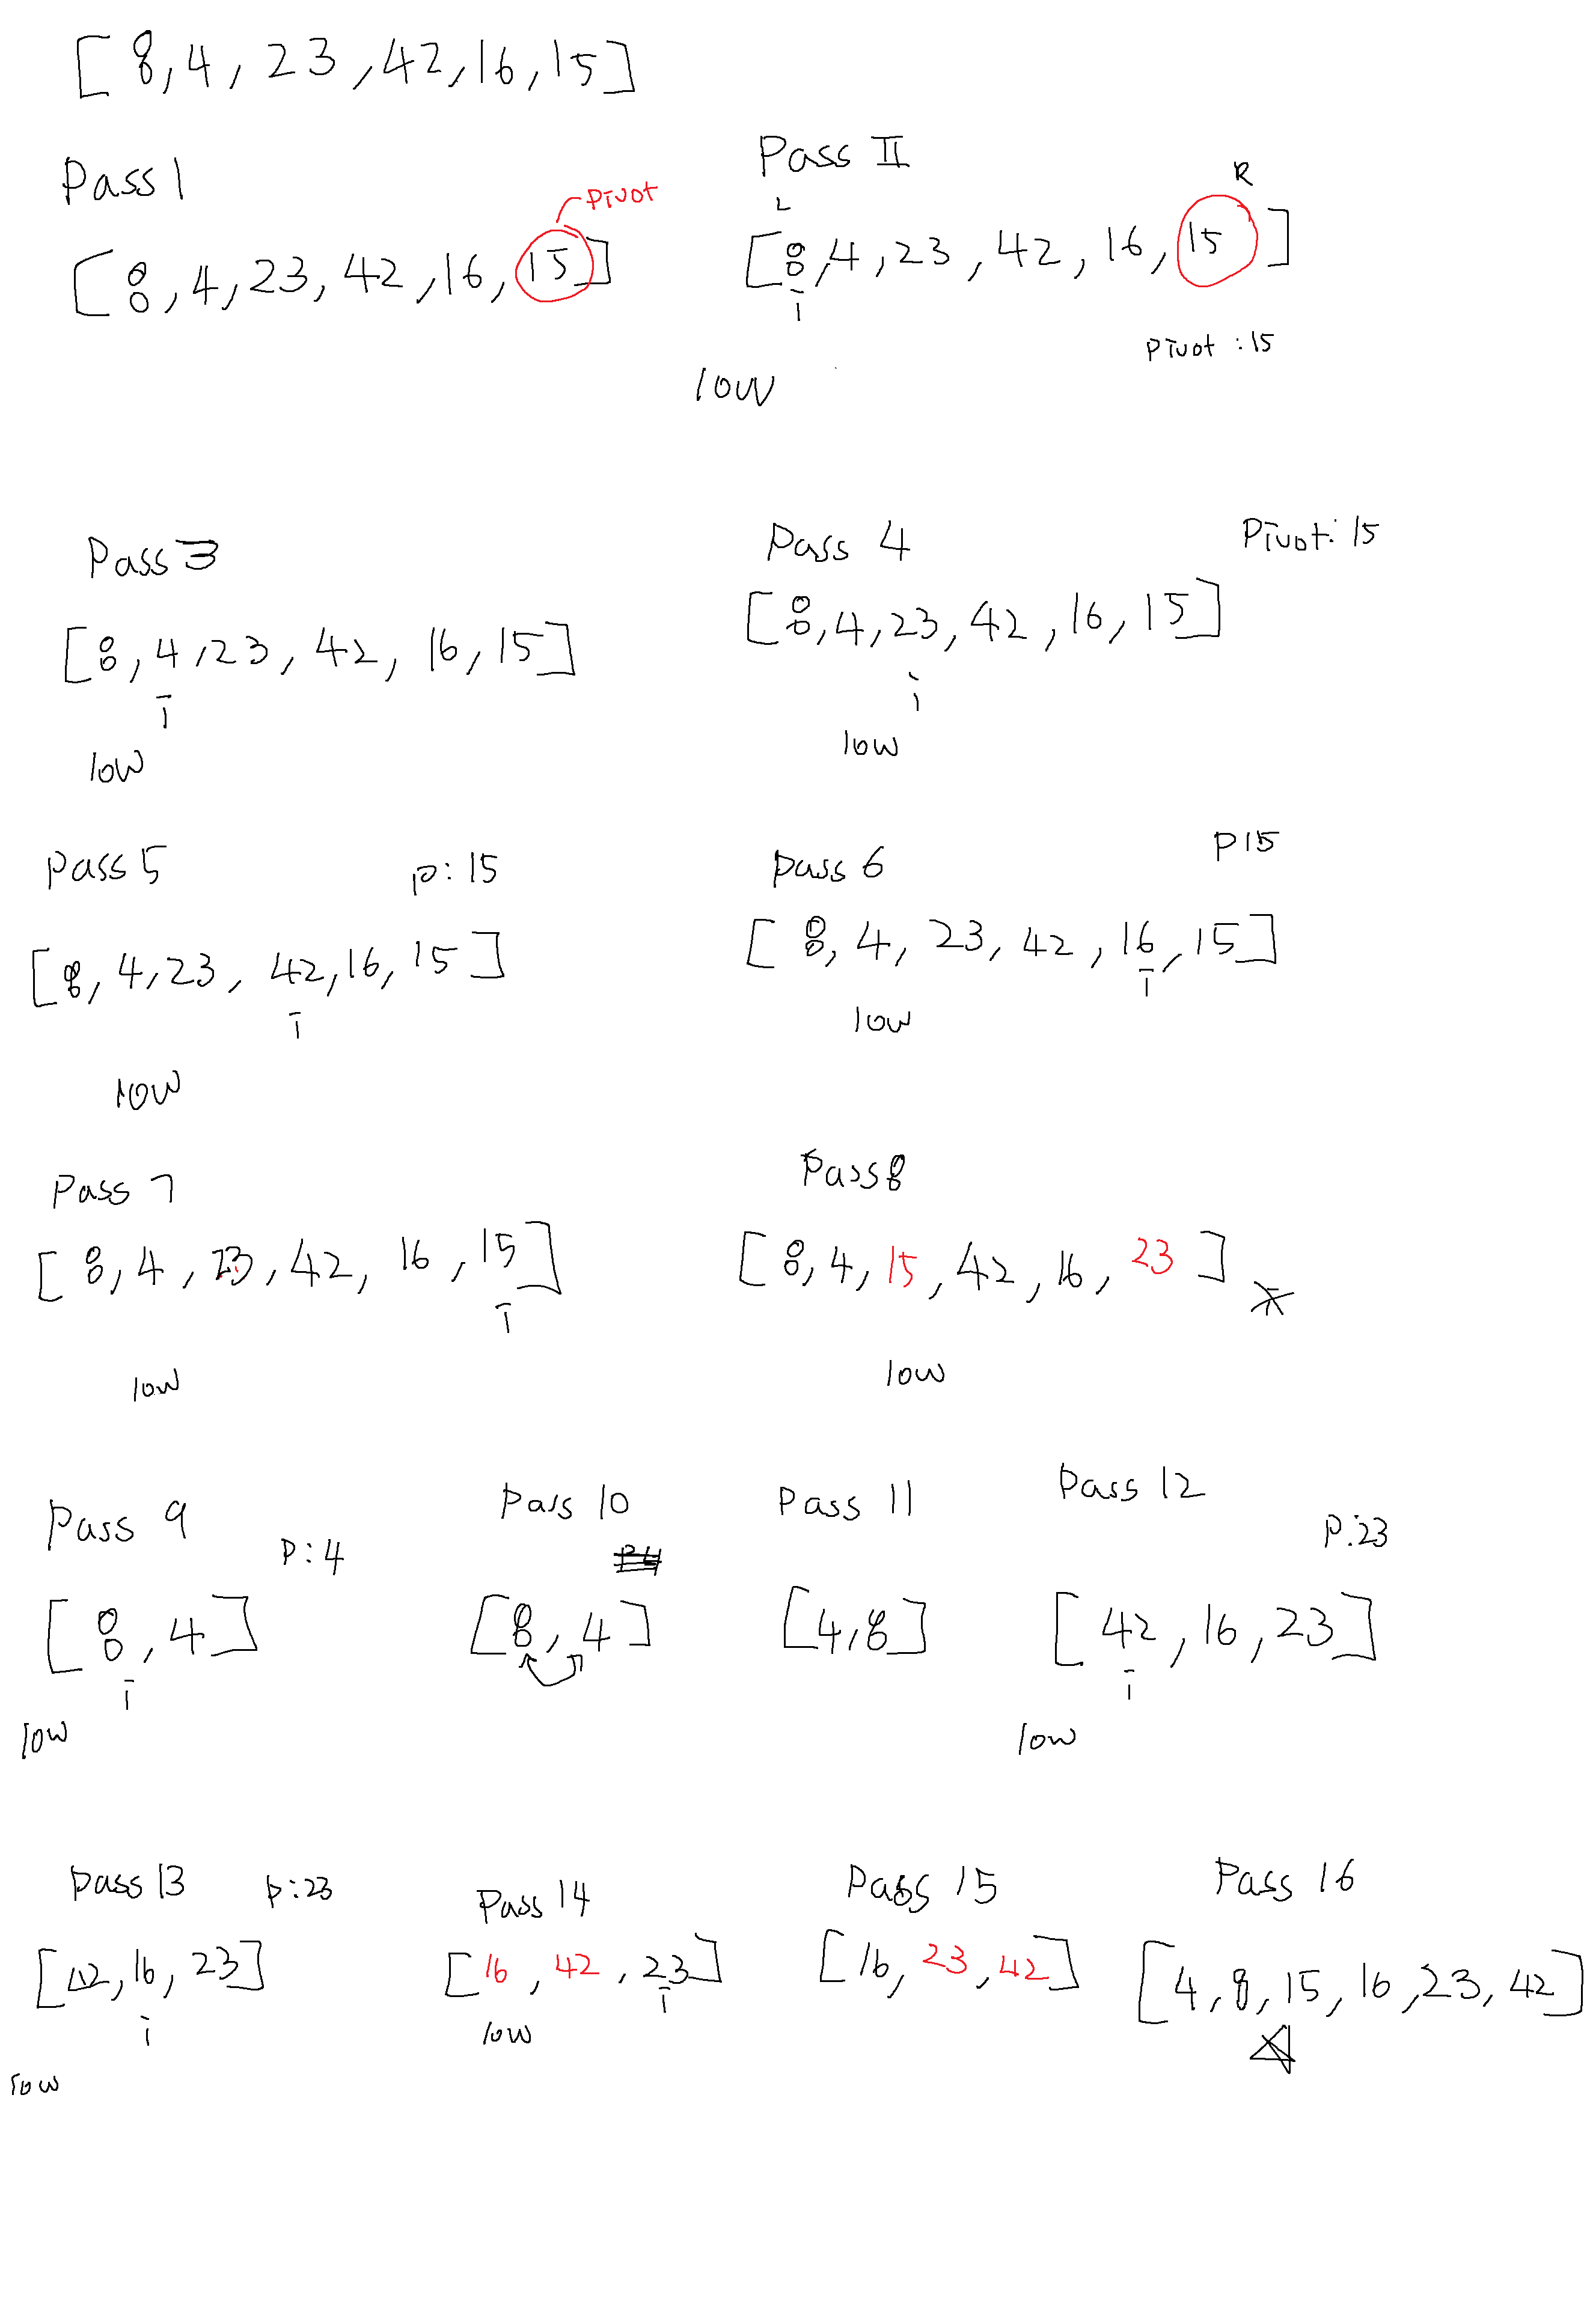 [ 8, 4, 23, 42, 16, 15 ]
Pass 1
Pivot
[ 8, 4, 23, 42, 16, 15 ]
Pass II
L R
[ 8, 4, 23, 42, 16, 15 ]
i
Pivot : 15
low
Pass 3
[ 8, 4, 23, 42, 16, 15 ]
i
low
Pass 4 Pivot: 15
[ 8, 4, 23, 42, 16, 15 ]
i
low
Pass 5 p: 15
[ 8, 4, 23, 42, 16, 15 ]
i
low
Pass 6 P 15
[ 8, 4, 23, 42, 16, 15 ]
i
low
Pass 7
[ 8, 4, 23, 42, 16, 15 ]
i
low
Pass 8
[ 8, 4, 15, 42, 16, 23 ]
low
Pass 9 P: 4
[ 8, 4 ]
i
low
Pass 10
[ 8, 4 ]
Pass 11
[ 4, 8 ]
Pass 12 P: 23
[ 42, 16, 23 ]
i
low
Pass 13 p: 23
[ 42, 16, 23 ]
i
low
Pass 14
[ 16, 42, 23 ]
i
low
Pass 15
[ 16, 23, 42 ]
Pass 16
[ 4, 8, 15, 16, 23, 42 ]